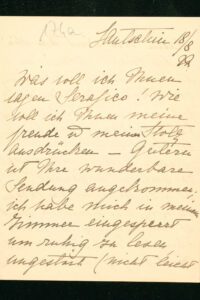 Lautschin 18/8
Was soll ich Ihnen
sagen Serafico! Wie
soll ich Ihnen meine
freude & meinen Stolz
ausdrücken — Gestern
ist Ihre wunderbare
Sendung angekommen,
ich habe mich in meinem
Zimmer eingesperrt
um ruhig zu lesen
ungestört (nicht leicht